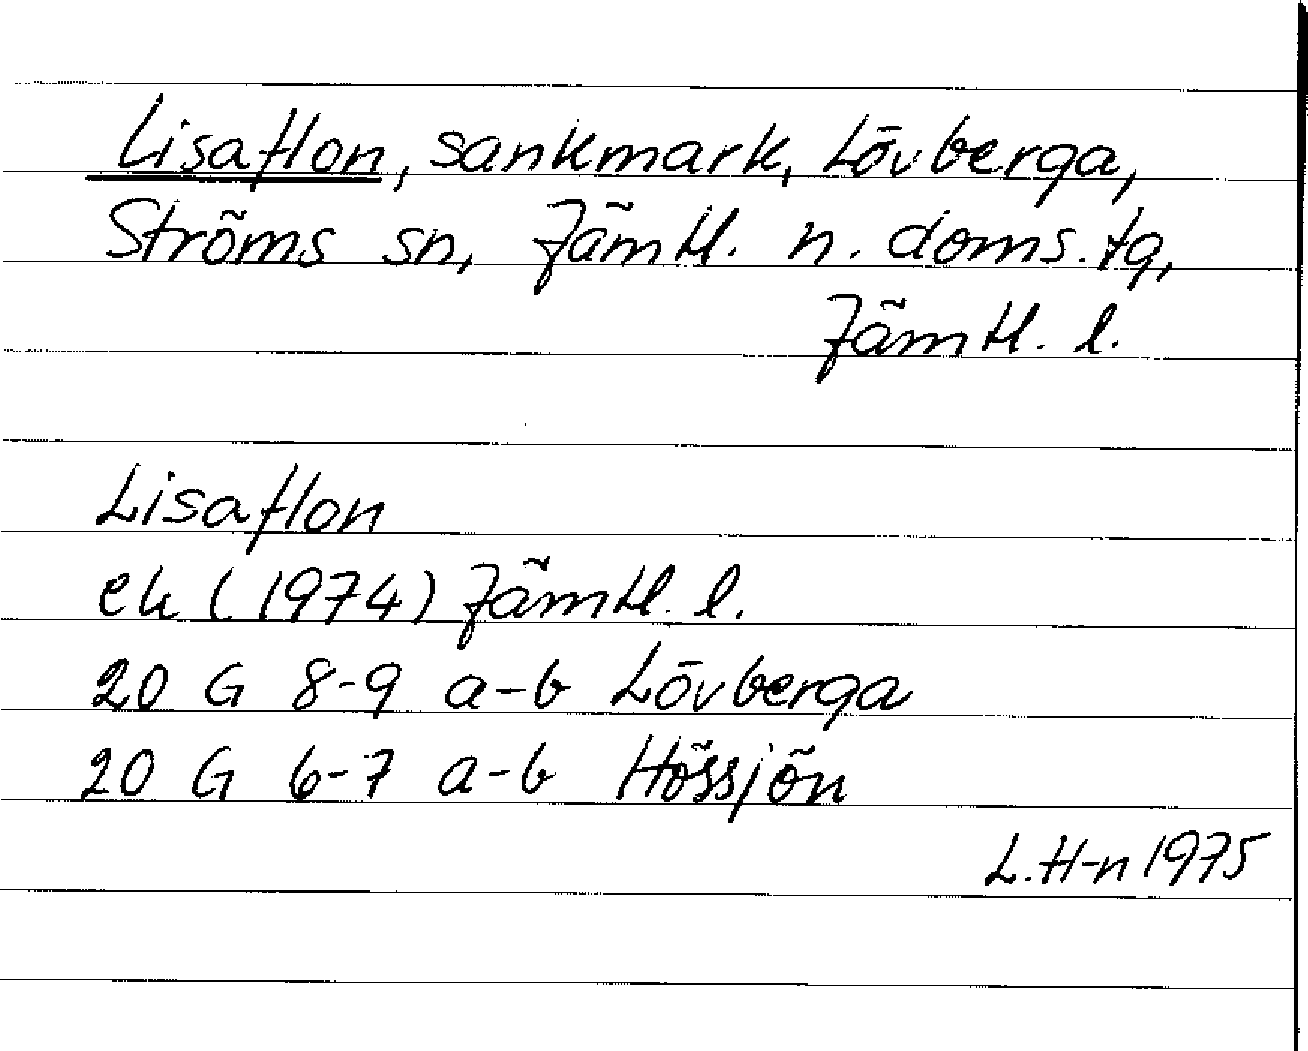 Lisaflon, sankmark, Lövberga,
Ströms sn, Jämtl. n. doms.tg,
Jämtl. l.
Lisaflon
ek (1974) Jämtl. l.
20 G 8-9 a-b Lövberga
20 G 6-7 a-b Hössjön
L.H-n 1975